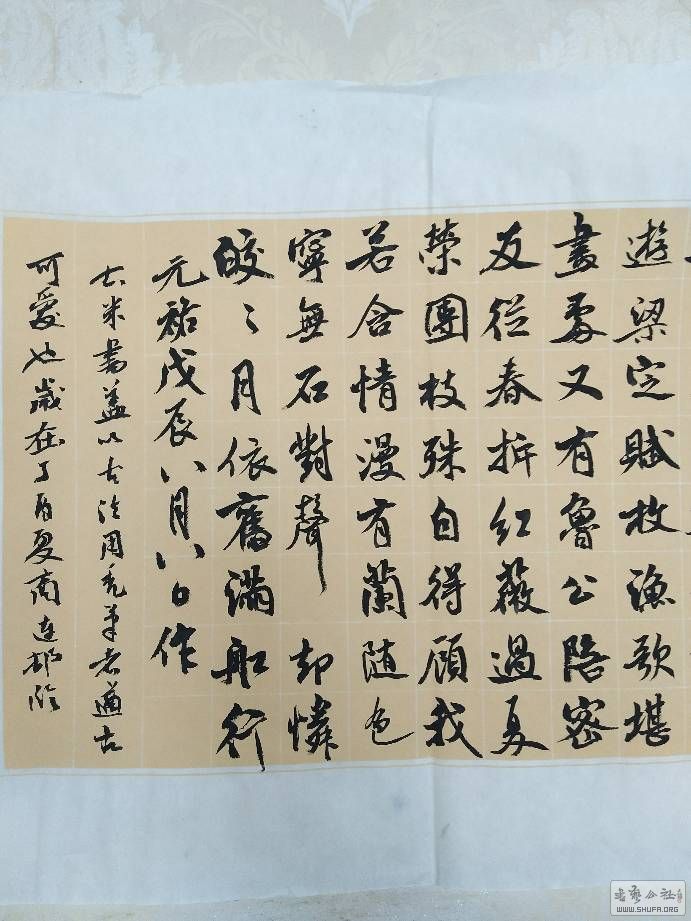 遊梁定賦枚漁歌堪
畫處又有魯公陪密
友從春拆紅薇過夏
榮團枝殊自得顧我
若含情漫有蘭隨色
寧無石對聲 却憐
皎〻月依舊滿船行
元祐戊辰八月八日作
右米書蓋以古法用禿筆者遒古
可愛也歲在丁酉夏南連郁臨
书艺公社
WWW.SHUFA.ORG